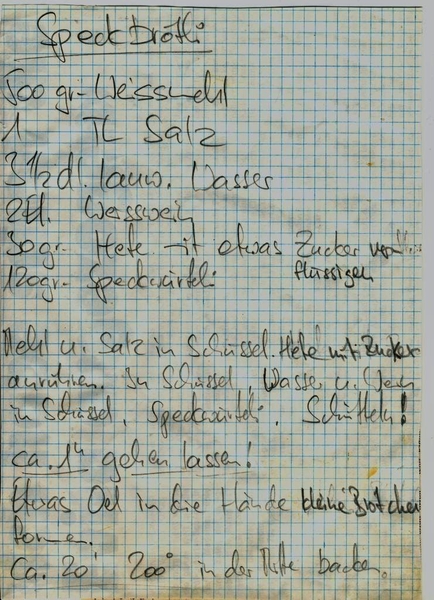 Speckbrötli
500 gr. Weissmehl
1 TL Salz
3 1/2 dl. lauw. Wasser
2 Weisswein
30 gr. Hefe mit etwas Zucker
flüssigen
120 gr. Speckwürfeli
Mehl u. Salz in Schüssel. Hefe mit Zucker
anrühren. In Schüssel, Wasser u. Wein
in Schüssel, Speckwürfeli. Schütteln!
ca. 1h gehen lassen!
Etwas Oel in die Hände kleine Brötchen
formen.
Ca. 20' 200° in der Mitte backen.